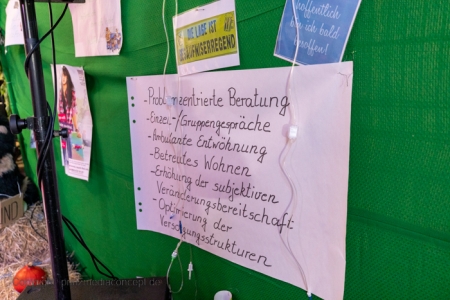 DIE LAGE IST
hoffentlich
bin ich bald
betroffen!
- Problemzentrierte Beratung
- Einzel-/Gruppengespräche
- Ambulante Entwöhnung
- Betreutes Wohnen
- Erhöhung der subjektiven
Veränderungsbereitschaft
- Optimierung der
Versorgungsstrukturen